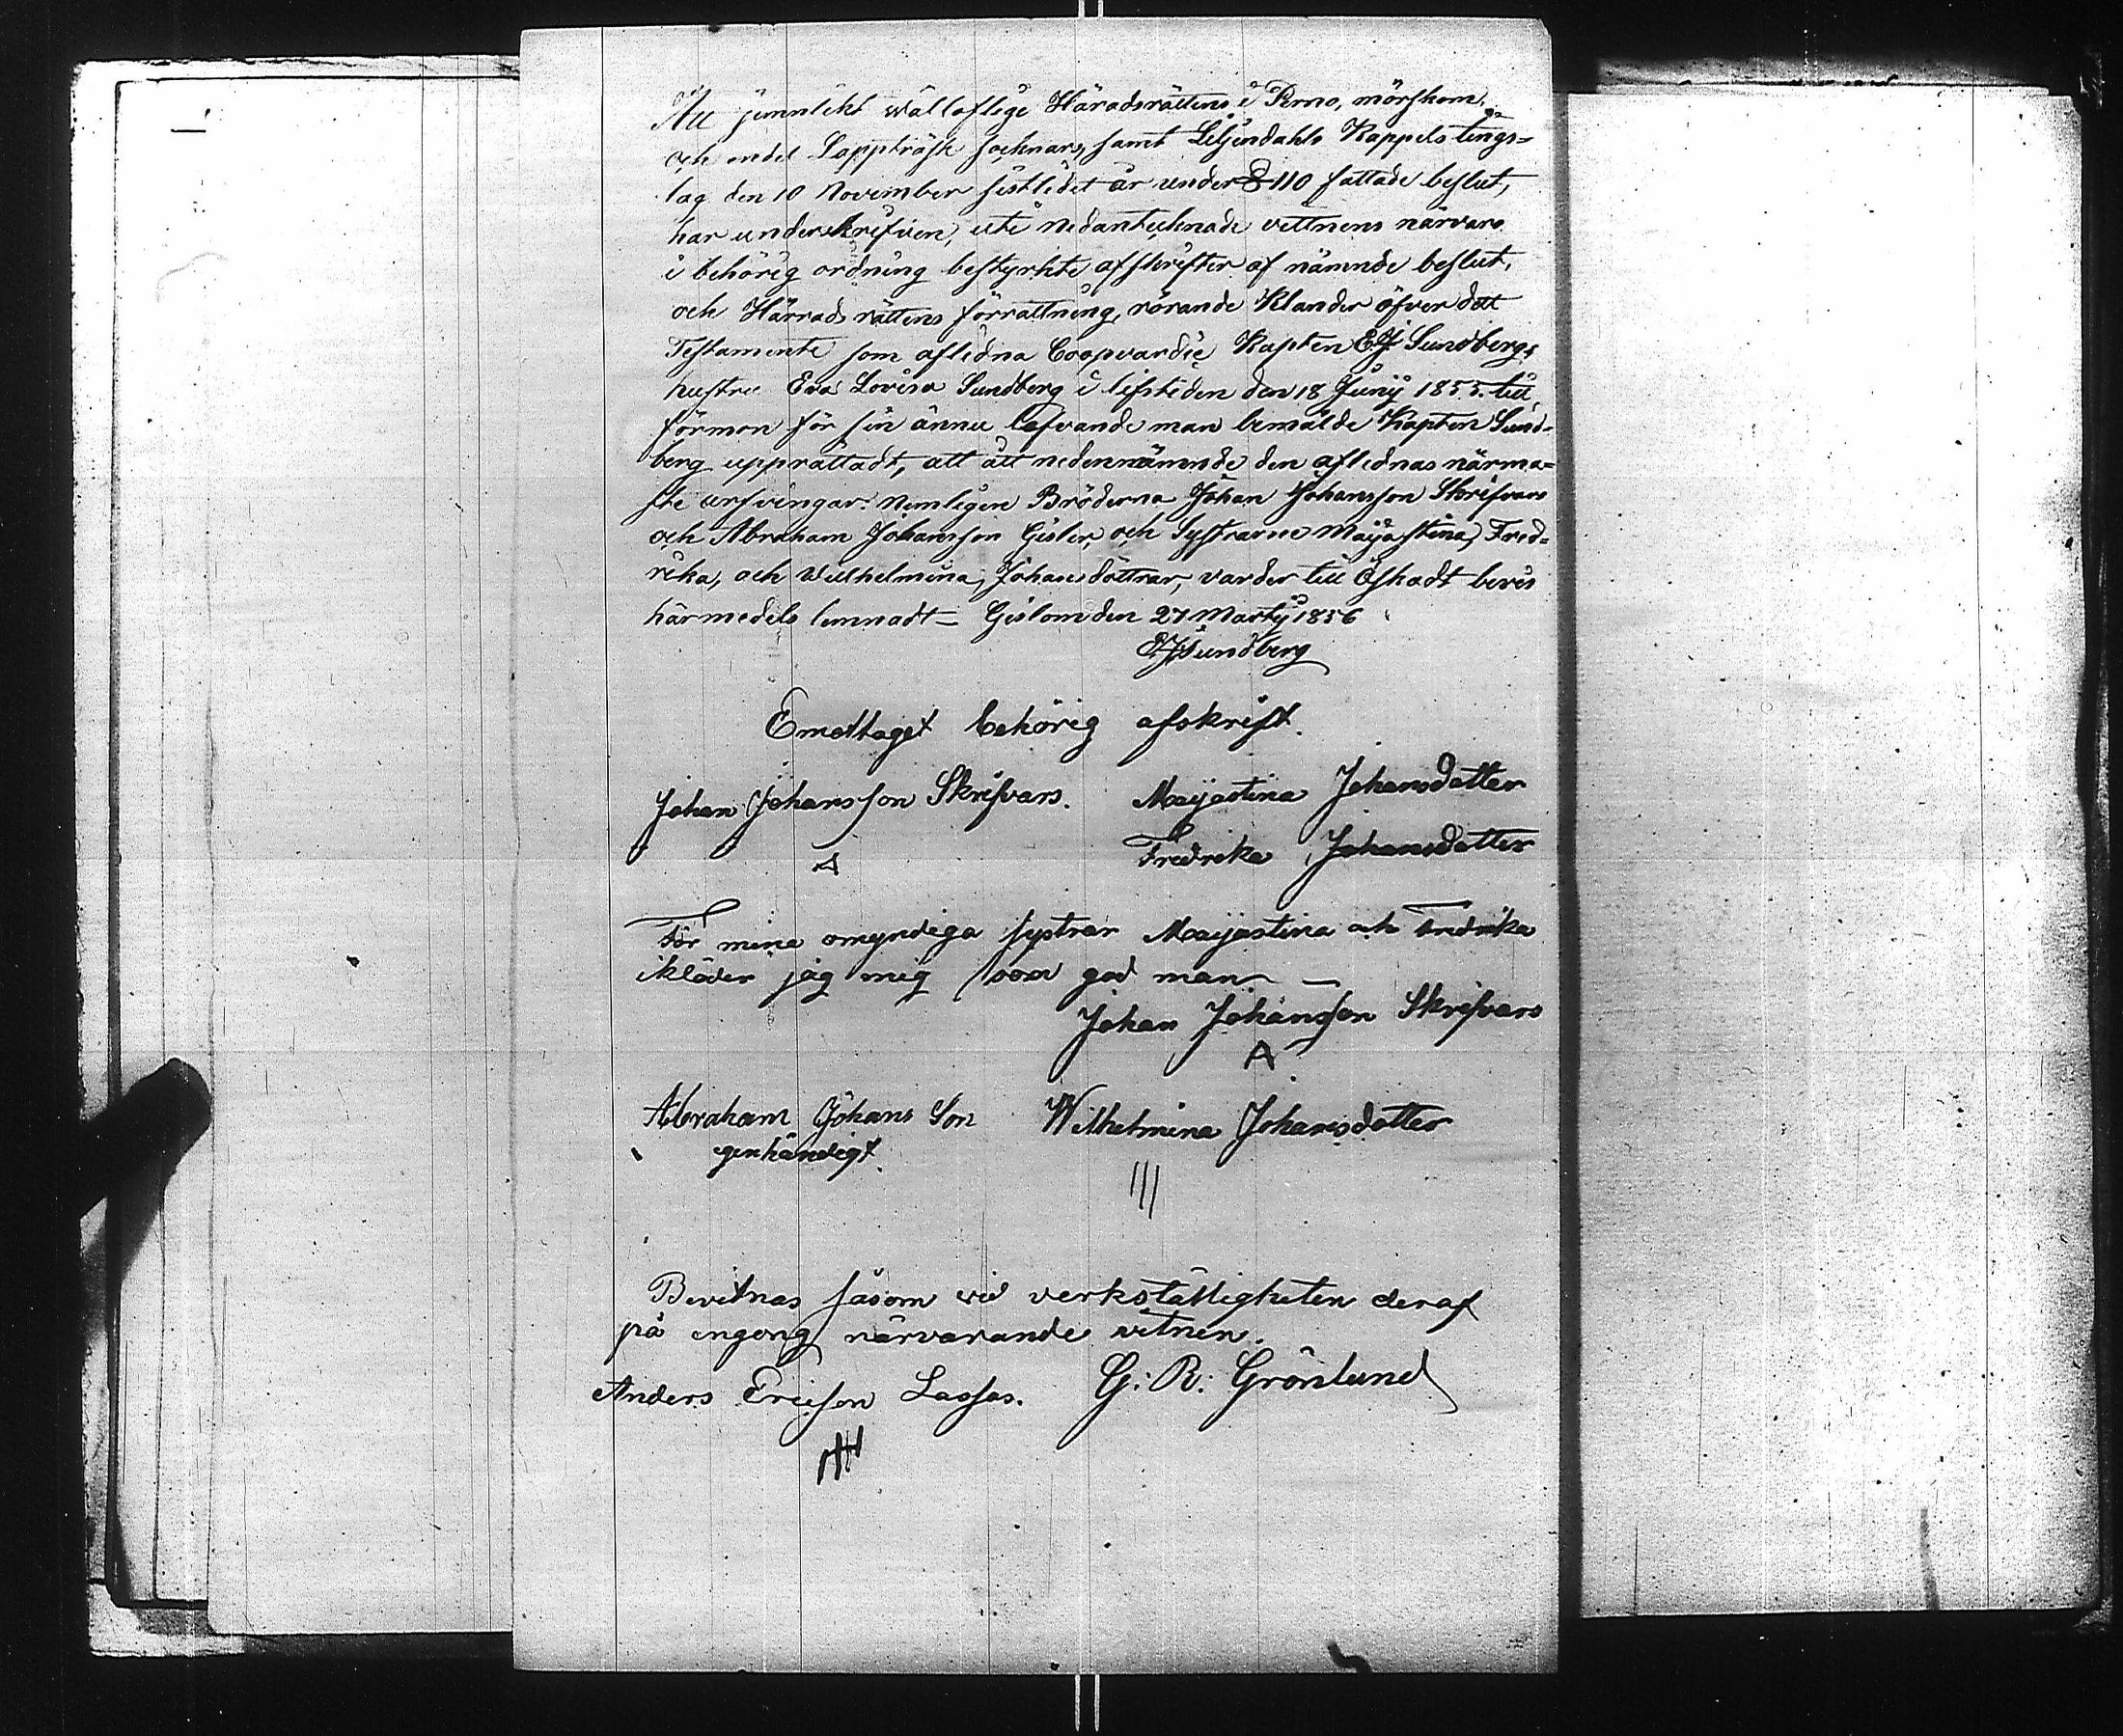 Att jemnlikt wällofliga Häradsrättens i Perno, mörskom,
och endel Lappträsk socknars, samt Liljendahls Kappels tings=
lag den 10 November sistledet år under § 110 fattade beslut,
har underskrifven, uti nedantecknade vettnens närvaro
i behörig ordning bestyrkte afskrifter af nämnde beslut,
och Härrads rättens förrattning, rörande Klander öfver det
Testamente som aflidna Coopvardie Kapten EJ Sundbergs
hustru Eva Lovisa Sundberg i lifstiden den 18 Junij 1855. till
förmon för sin ännu lefvande man bemälde Kapten Sund=
berg upprättadt, att åt nedennämnde den aflednas närma=
ste arfvingar. Nemligen Bröderna Johan Johansson Skrifvars
och Abraham Johansson Gisler, och Systrarne Maijastina, Fred=
rika, och Willhelmina, Johans döttrar, varder till Öfskadt bevis
härmedels lemnadt — Gislom den 27 Martij 1856
EJSundberg
Emottaget behörig afskrift.
Johan Johansson Skrifvars. Maijastina Johansdotter
Fredreka Johansdotter
För mina omyndiga systrar Maijastina och Fredrika
ikläder jag mig som god man —
Johan Johansson Skrifvars
A
Abraham Johans Son Wilhelmina Johansdotter
egenhändigt.
III
Bevitnas såsom vid verkställigheten deraf
på engong närvarande vitnen.
Anders Ericson Lassas. G: R: Grönlund